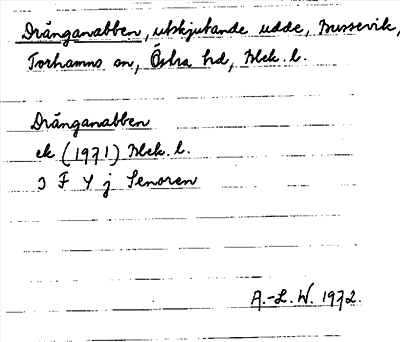 Dränganabben, utskjutande udde, Bussevik,
Torhamns sn, Östra hd, Blek. l.
Dränganabben
ek (1971) Blek. l.
3 F Y j Senoren
A.-L. W. 1972.